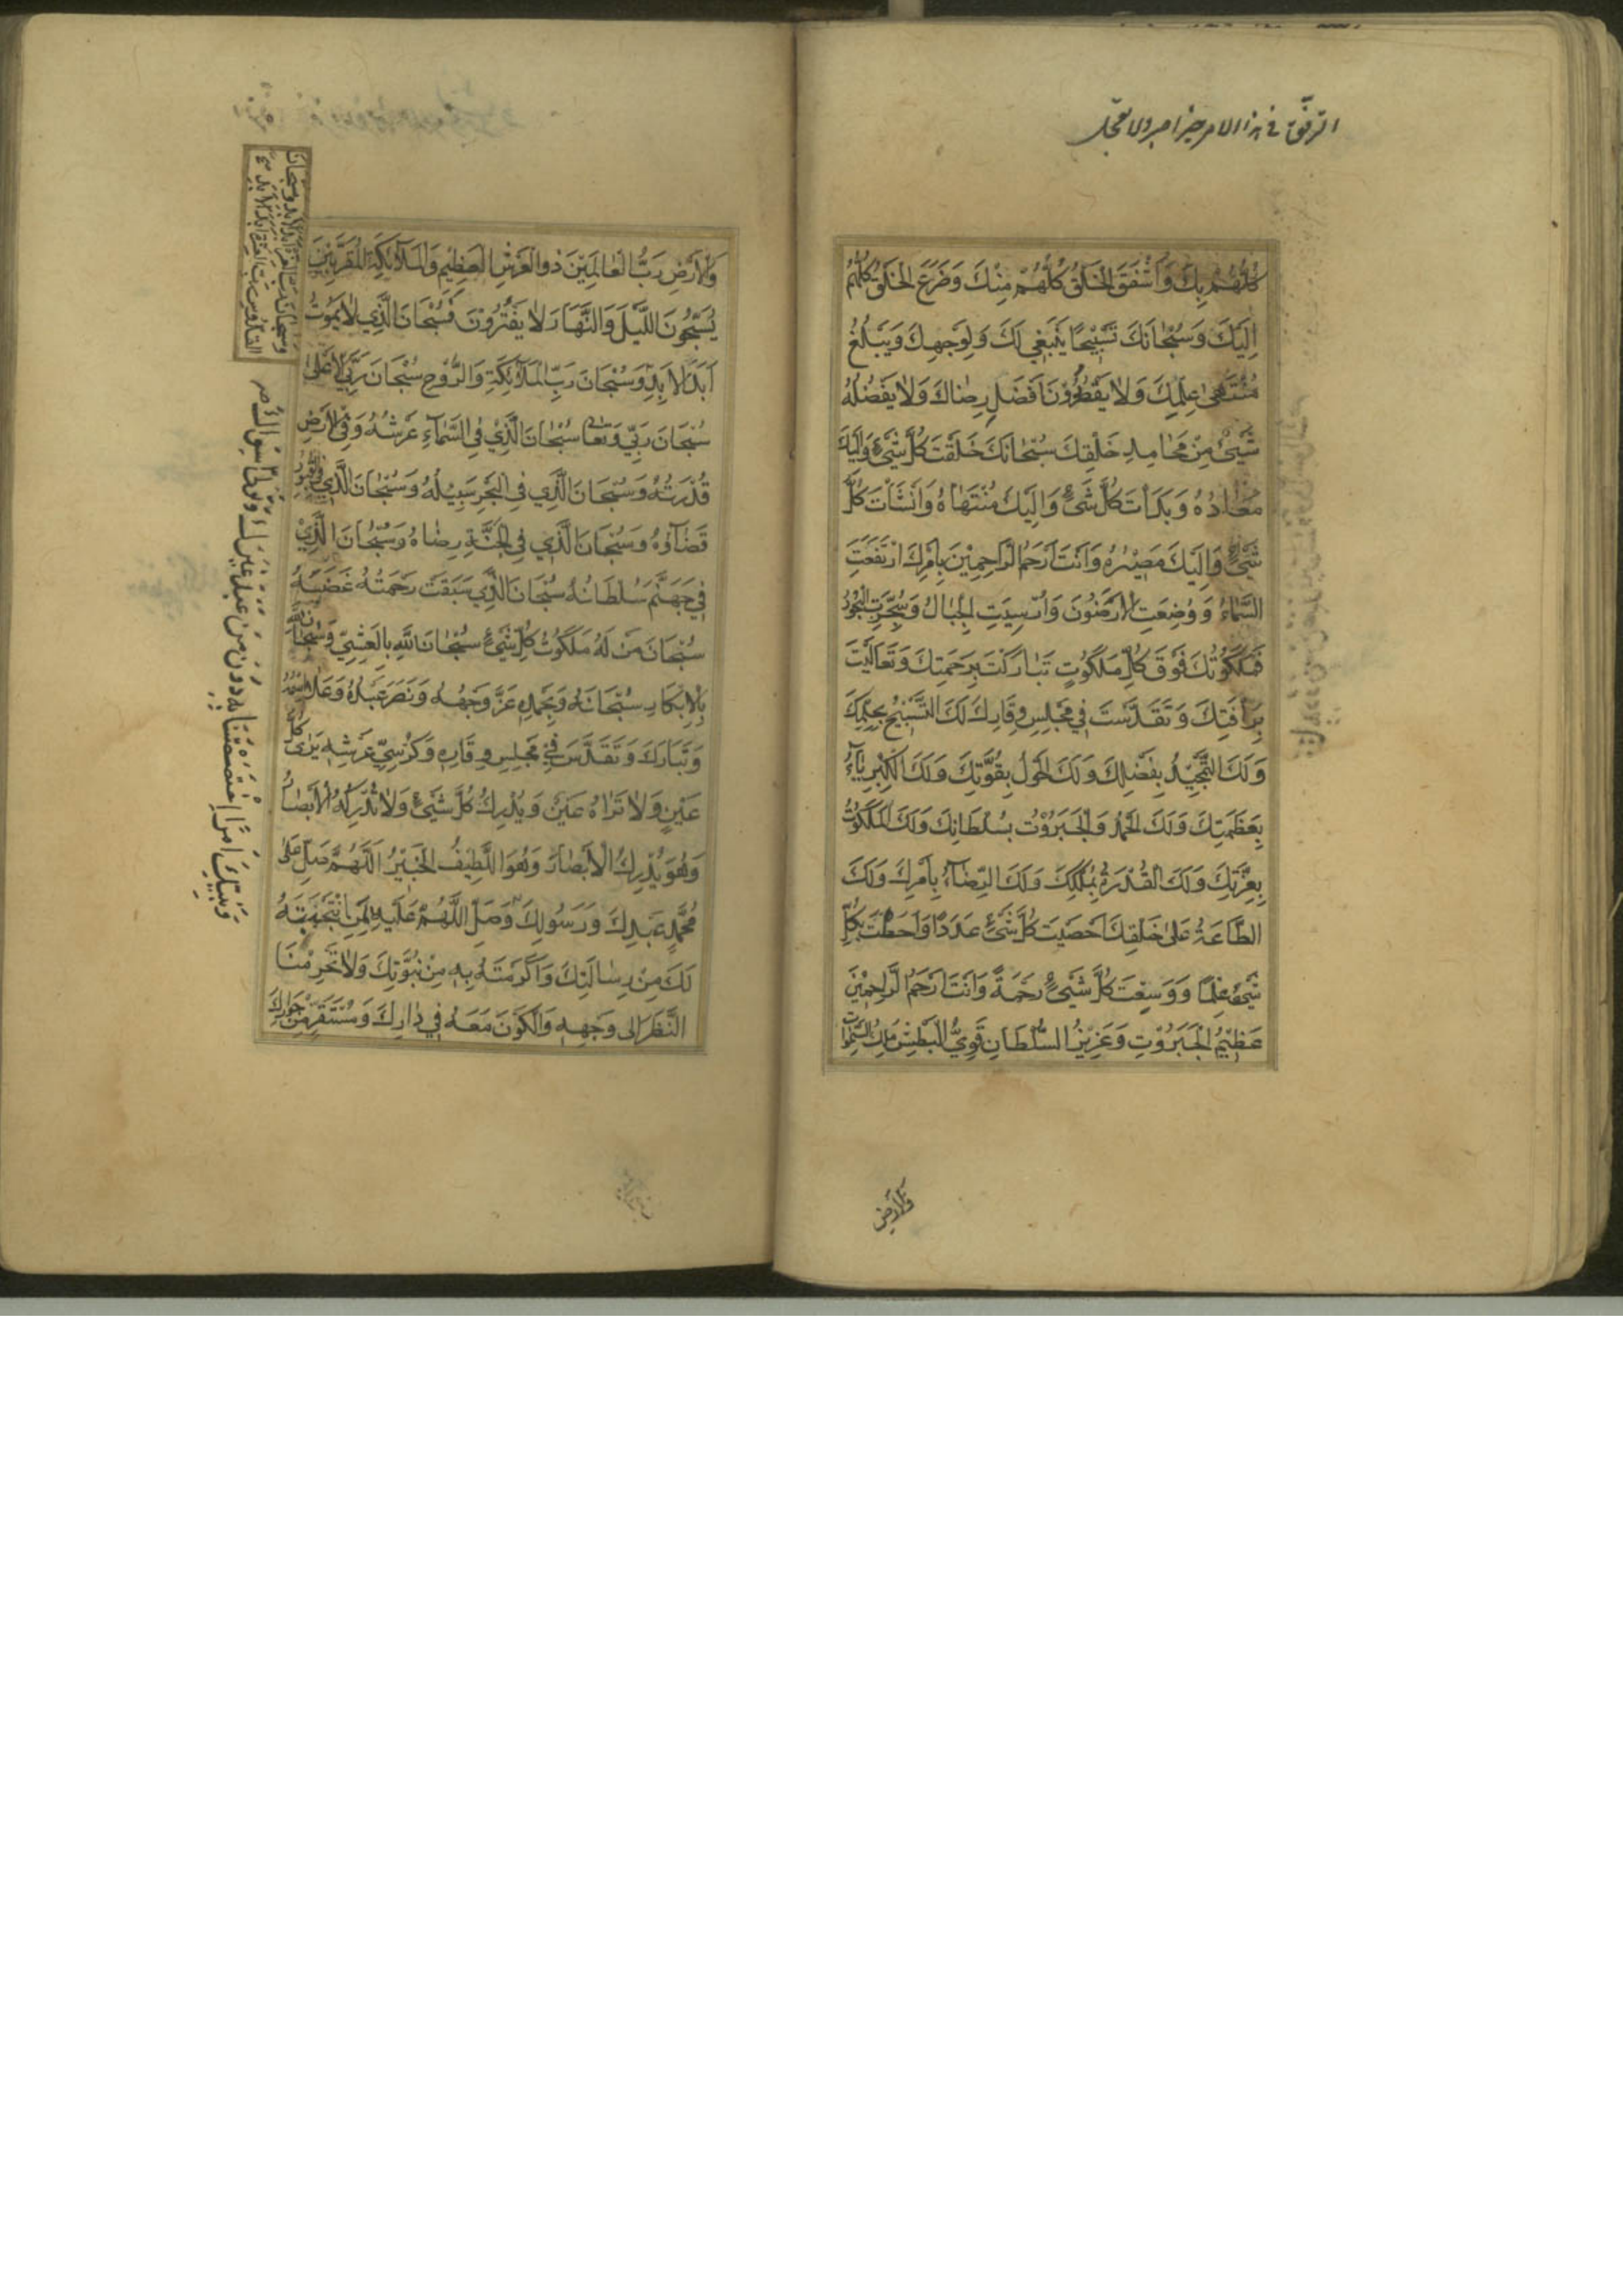 الترفق في هذا الامر خير اصبر ولا تعجل
كُلُّهُمْ بِكَ وَاَشْفَقَ الْخَلْقُ كُلُّهُمْ مِنْكَ وَضَرَعَ الْخَلْقُ كُلُّهُمْ
اِلَيْكَ وَسُبْحَانَكَ تَسْبِيْحًا يَنْبَغِي لَكَ وَلِوَجْهِكَ وَيَبْلُغُ
مُنْتَهٰى عِلْمِكَ وَلَا يَقْصُرُ دُوْنَ اَفْضَلِ رِضَاكَ وَلَا يَفْضُلُهُ
شَيْءٌ مِنْ مَحَامِدِ خَلْقِكَ سُبْحَانَكَ خَلَقْتَ كُلَّ شَيْءٍ وَاِلَيْكَ
مَعَادُهُ وَبَدَأْتَ كُلَّ شَيْءٍ وَاِلَيْكَ مُنْتَهَاهُ وَاَنْشَأْتَ كُلَّ
شَيْءٍ وَاِلَيْكَ مَصِيْرُهُ وَاَنْتَ اَرْحَمُ الرَّاحِمِيْنَ بِاَمْرِكَ ارْتَفَعَتِ
السَّمَاءُ وَوُضِعَتِ الْاَرَضُوْنَ وَاُرْسِيَتِ الْجِبَالُ وَسُجِّرَتِ الْبُحُوْرُ
فَمَلَكُوْتُكَ فَوْقَ كُلِّ مَلَكُوْتٍ تَبَارَكْتَ بِرَحْمَتِكَ وَتَعَالَيْتَ
بِرَأْفَتِكَ وَتَقَدَّسْتَ فِي مَجْلِسِ وَقَارِكَ لَكَ التَّسْبِيْحُ بِحِلْمِكَ
وَلَكَ التَّمْجِيْدُ بِفَضْلِكَ وَلَكَ الْحَوْلُ بِقُوَّتِكَ وَلَكَ الْكِبْرِيَاءُ
بِعَظَمَتِكَ وَلَكَ الْحَمْدُ وَالْجَبَرُوْتُ بِسُلْطَانِكَ وَلَكَ الْمَلَكُوْتُ
بِعِزَّتِكَ وَلَكَ الْقُدْرَةُ بِمُلْكِكَ وَلَكَ الرِّضَاءُ بِاَمْرِكَ وَلَكَ
الطَّاعَةُ عَلٰى خَلْقِكَ اَحْصَيْتَ كُلَّ شَيْءٍ عَدَدًا وَاَحَطْتَ بِكُلِّ
شَيْءٍ عِلْمًا وَوَسِعْتَ كُلَّ شَيْءٍ رَحْمَةً وَاَنْتَ اَرْحَمُ الرَّاحِمِيْنَ
عَظِيْمُ الْجَبَرُوْتِ وَعَزِيْزُ السُّلْطَانِ قَوِيُّ الْبَطْشِ مَلِكُ السَّمٰوَاتِ
وَالْاَرْضِ
وَالْاَرْضِ رَبُّ الْعَالَمِيْنَ ذُو الْعَرْشِ الْعَظِيْمِ وَالْمَلَائِكَةِ الْمُقَرَّبِيْنَ
يُسَبِّحُوْنَ اللَّيْلَ وَالنَّهَارَ لَا يَفْتُرُوْنَ فَسُبْحَانَ الَّذِي لَا يَمُوْتُ
اَبَدَ الْاَبَدِ وَسُبْحَانَ رَبِّ الْمَلَائِكَةِ وَالرُّوْحِ سُبْحَانَ رَبِّيَ الْاَعْلٰى
سُبْحَانَ رَبِّي وَتَعَالٰى سُبْحَانَ الَّذِي فِي السَّمَاءِ عَرْشُهُ وَفِي الْاَرْضِ
قُدْرَتُهُ وَسُبْحَانَ الَّذِي فِي الْبَحْرِ سَبِيْلُهُ وَسُبْحَانَ الَّذِي فِي الْقُبُوْرِ
قَضَاؤُهُ وَسُبْحَانَ الَّذِي فِي الْجَنَّةِ رِضَاهُ وَسُبْحَانَ الَّذِيْ
فِي جَهَنَّمَ سُلْطَانُهُ سُبْحَانَ الَّذِي سَبَقَتْ رَحْمَتُهُ غَضَبَهُ
سُبْحَانَ مَنْ لَهُ مَلَكُوْتُ كُلِّ شَيْءٍ سُبْحَانَ اللهِ بِالْعَشِيِّ وَسُبْحَانَ اللهِ
بِالْاِبْكَارِ سُبْحَانَهُ وَبِحَمْدِهِ عَزَّ وَجْهُهُ وَنَصَرَ عَبْدَهُ وَعَلَا
وَتَبَارَكَ وَتَقَدَّسَ فِيْ مَجْلِسِ وَقَارِهِ وَكُرْسِيِّ عَرْشِهِ يَرٰى كُلَّ
عَيْنٍ وَلَا تَرَاهُ عَيْنٌ وَيُدْرِكُ كُلَّ شَيْءٍ وَلَا تُدْرِكُهُ الْاَبْصَارُ
وَهُوَ يُدْرِكُ الْاَبْصَارَ وَهُوَ اللَّطِيْفُ الْخَبِيْرُ اَللّٰهُمَّ صَلِّ عَلٰى
مُحَمَّدٍ عَبْدِكَ وَرَسُوْلِكَ وَصَلِّ اَللّٰهُمَّ عَلَيْهِ بِمَنِ انْتَجَبْتَهُ
لَكَ مِنْ رِسَالَتِكَ وَاَكْرَمْتَهُ بِهِ مِنْ نُبُوَّتِكَ وَلَا تَحْرِمْنَا
النَّظَرَ اِلٰى وَجْهِهِ وَالْكَوْنَ مَعَهُ فِي دَارِكَ وَمُسْتَقَرٍّ مِنْ جِوَارِكَ